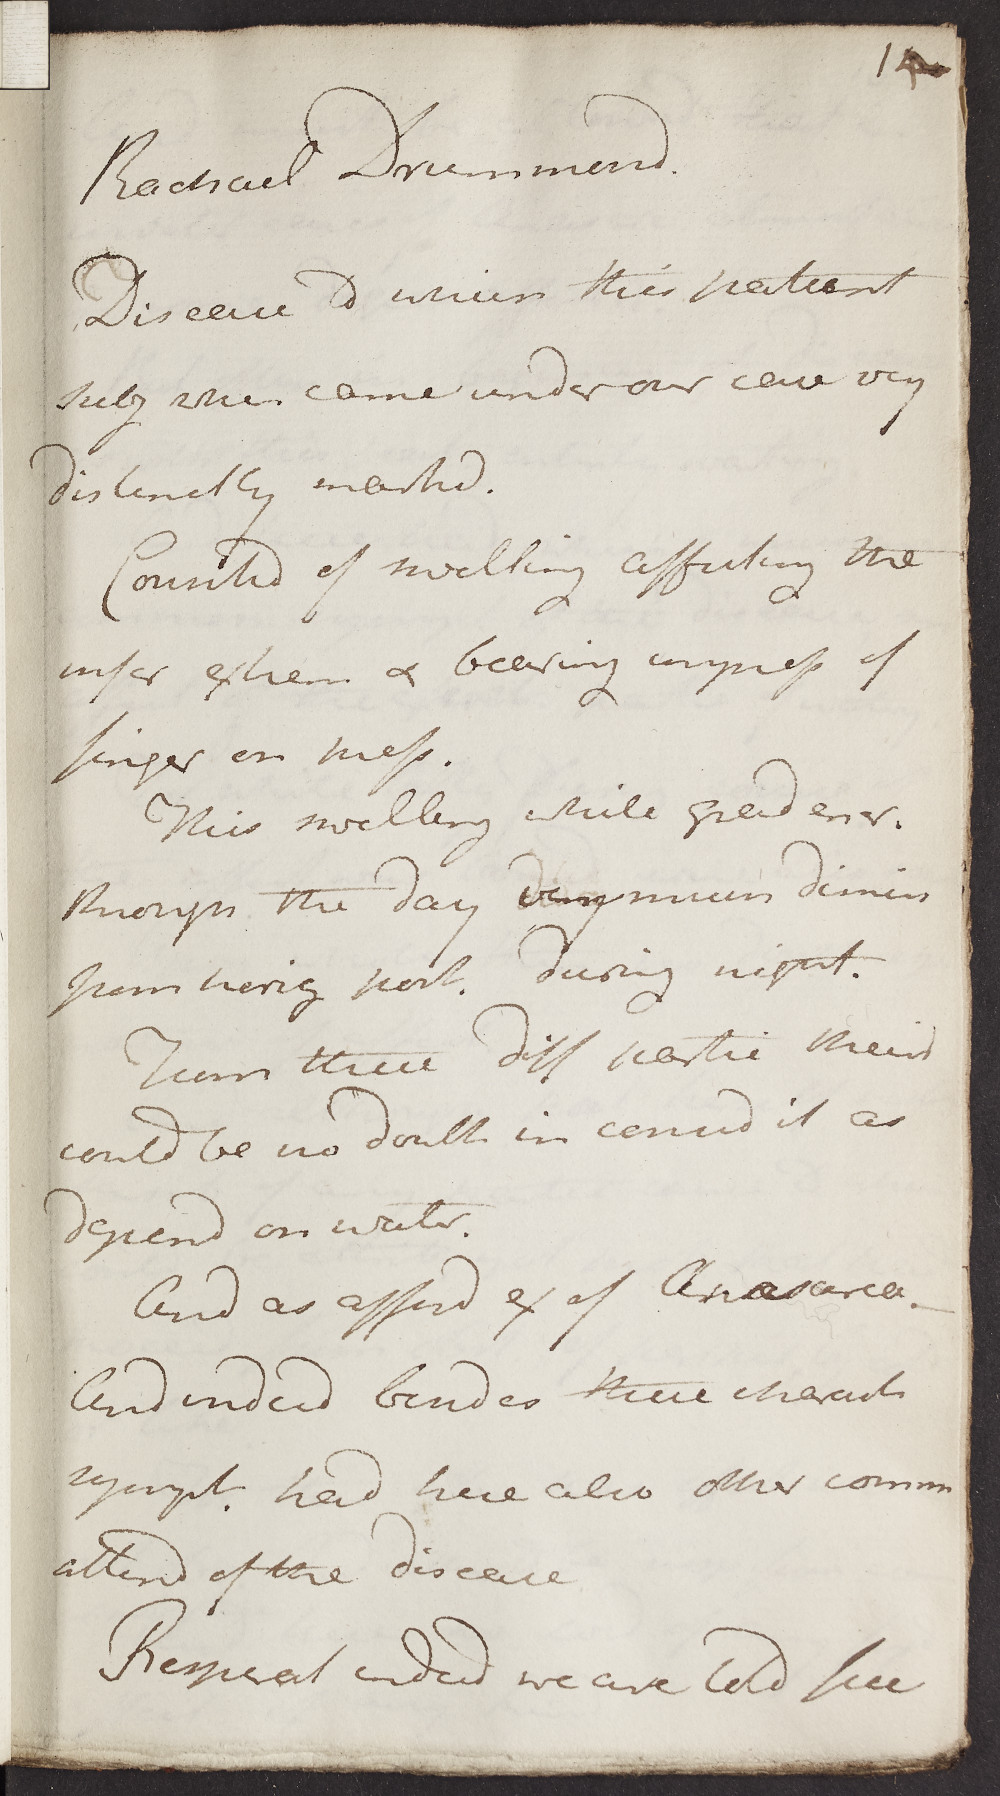 14
Rachael Drummond.
Disease to which this patient
subj when came under our care very
distinctly markd.
Consistd of swelling affecting the
infer extrem & bearing impress of
finger on press.
This swelling while gead
through the day very much dimin
from horiz post. during night.
From these diff partic there
could be no doubt in consid it as
depend on water.
And as afford ex of Anasarca.
And indeed besides these charact
sympt. had here also other comm
attend of the disease
Respirat indeed we are told free